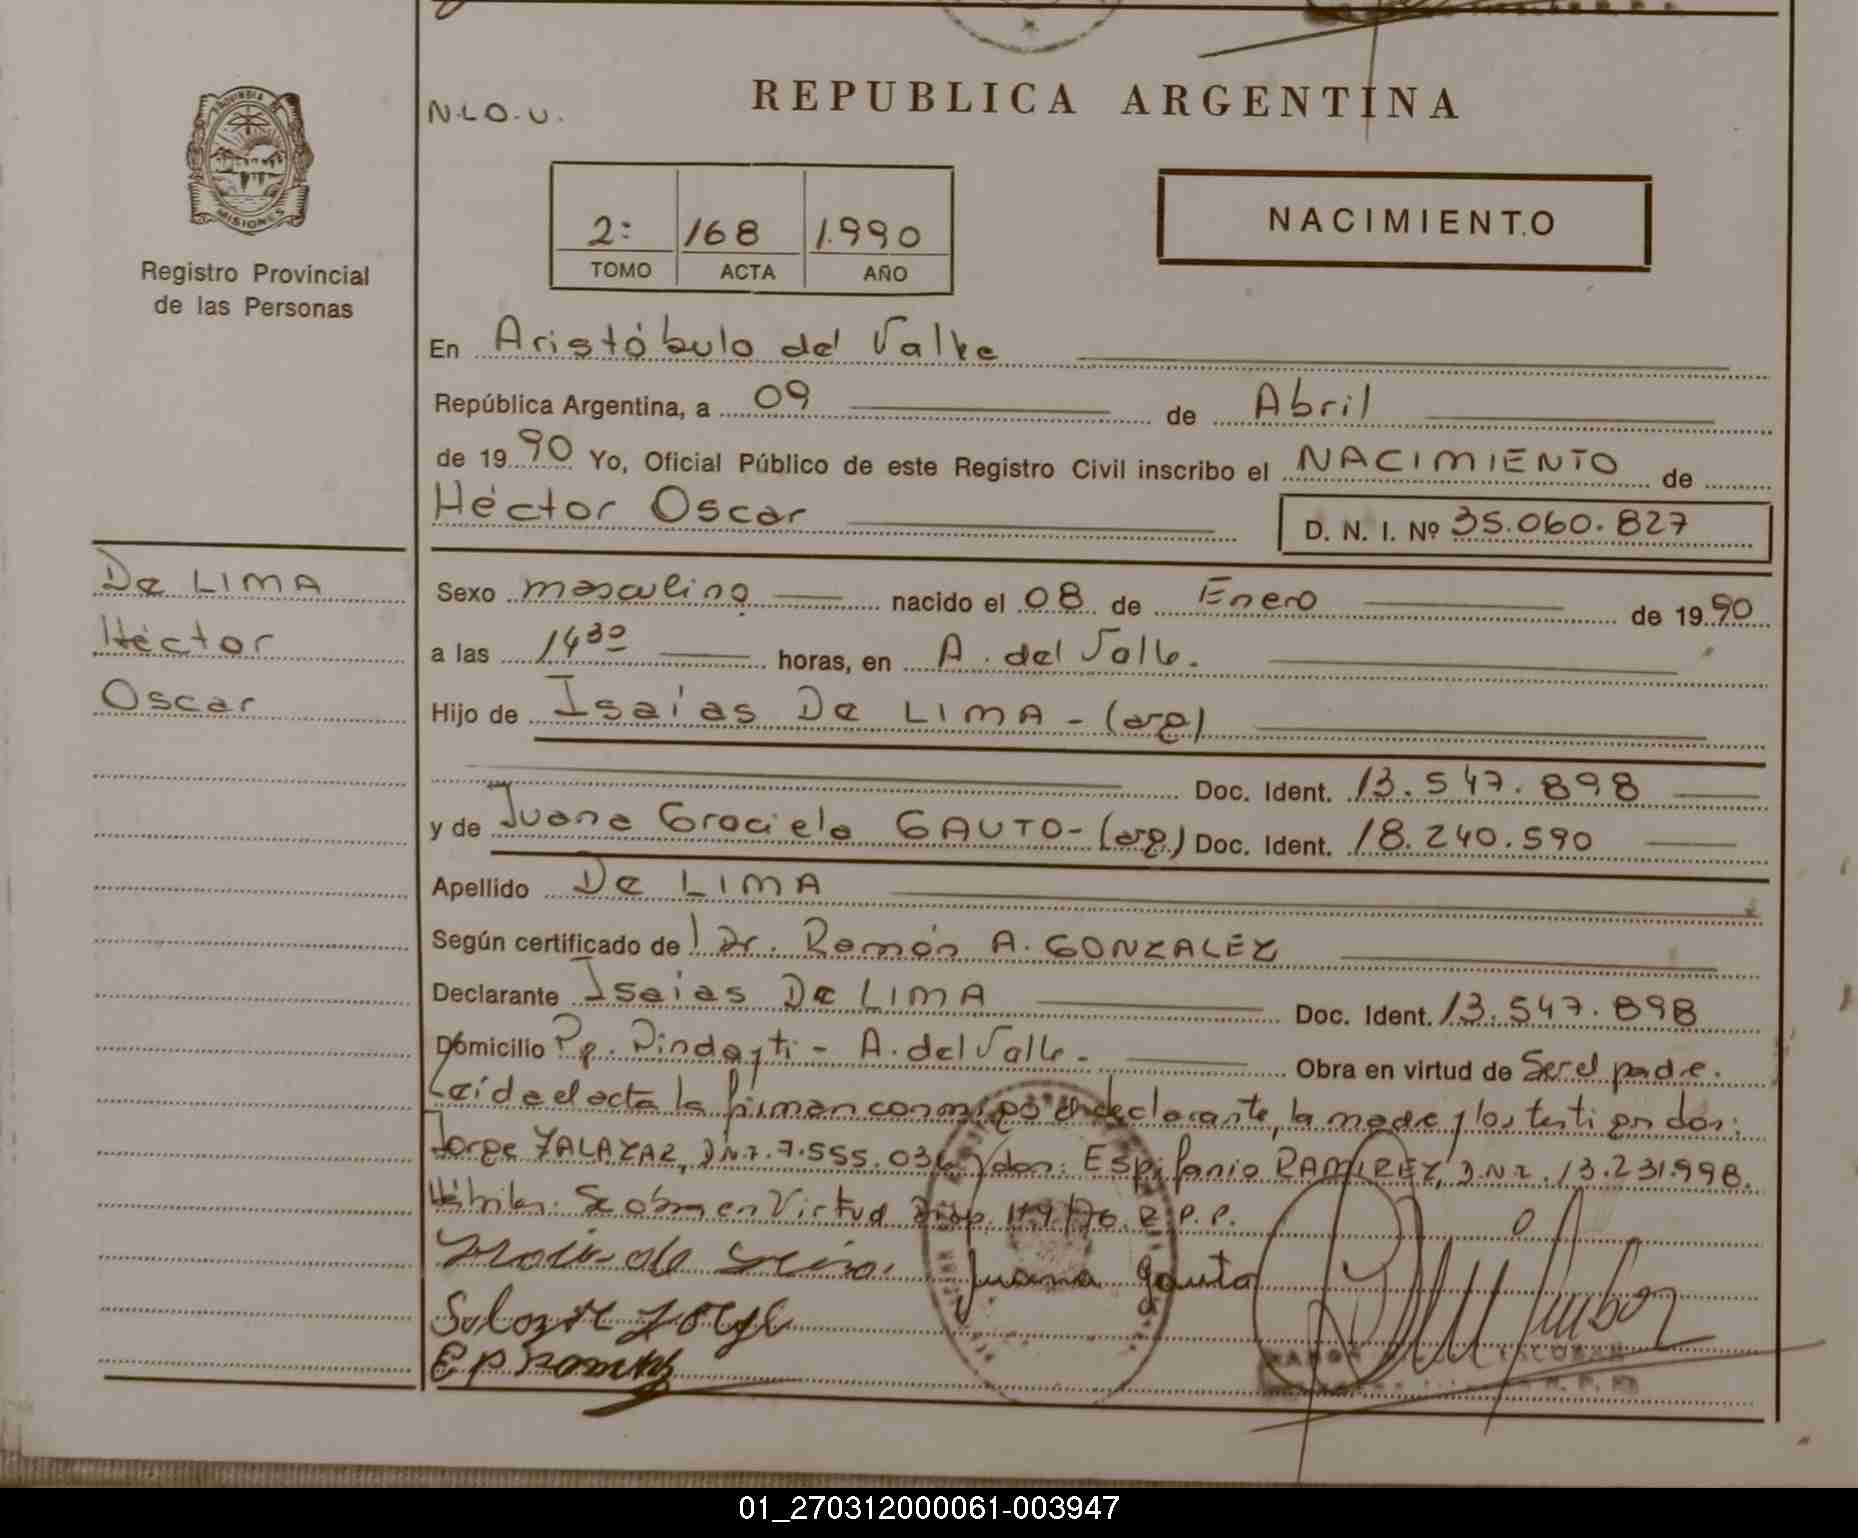 PROVINCIA
MISIONES
Registro Provincial
de las Personas
De LIMA
Héctor
Oscar
N.L.O.U.
REPUBLICA ARGENTINA
2: 168 1.990
TOMO ACTA AÑO
NACIMIENTO
En Aristóbulo del Valle
República Argentina, a 09 de Abril
de 19 90 Yo, Oficial Público de este Registro Civil inscribo el NACIMIENTO de
Héctor Oscar D. N. I. Nº 35.060.827
Sexo masculino nacido el 08 de Enero de 19 90
a las 14 30 horas, en A. del Valle.
Hijo de Isaías De LIMA - (arg)
Doc. Ident. 13.547.898
y de Juana Graciela GAUTO - (arg) Doc. Ident. 18.240.590
Apellido De LIMA
Según certificado de Dr. Ramón A. GONZALEZ
Declarante Isaías De LIMA Doc. Ident. 13.547.898
Domicilio Pp. Pindayti - A. del Valle - Obra en virtud de Ser el padre.
Leída el acta la firman conmigo el declarante, la madre y los testigos don:
Jorge ZALAZAR, D.N.I. 7.555.034 y don: Espifanio RAMIREZ, D.N.I. 13.231.998.
Hábiles. Se obra en Virtud Disp. R.P.P.
Juana Gauto
Salazar Jorge
E P Ramirez
RAMON ESCOBAR
01_270312000061-003947